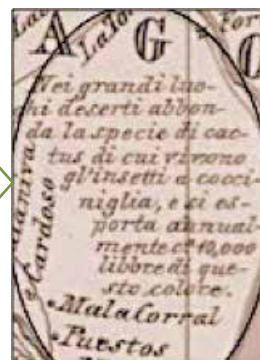 A G O
La To
For
Nei grandi luo-
hi deserti abbon-
da la specie di cac-
tus di cui vivono
gl'insetti a cocci-
niglia, e si es-
porta annual-
mente c.ª 10,000
libbre di que-
sto colore.
Maniva
Cardoso
Mala Corral
Puestos